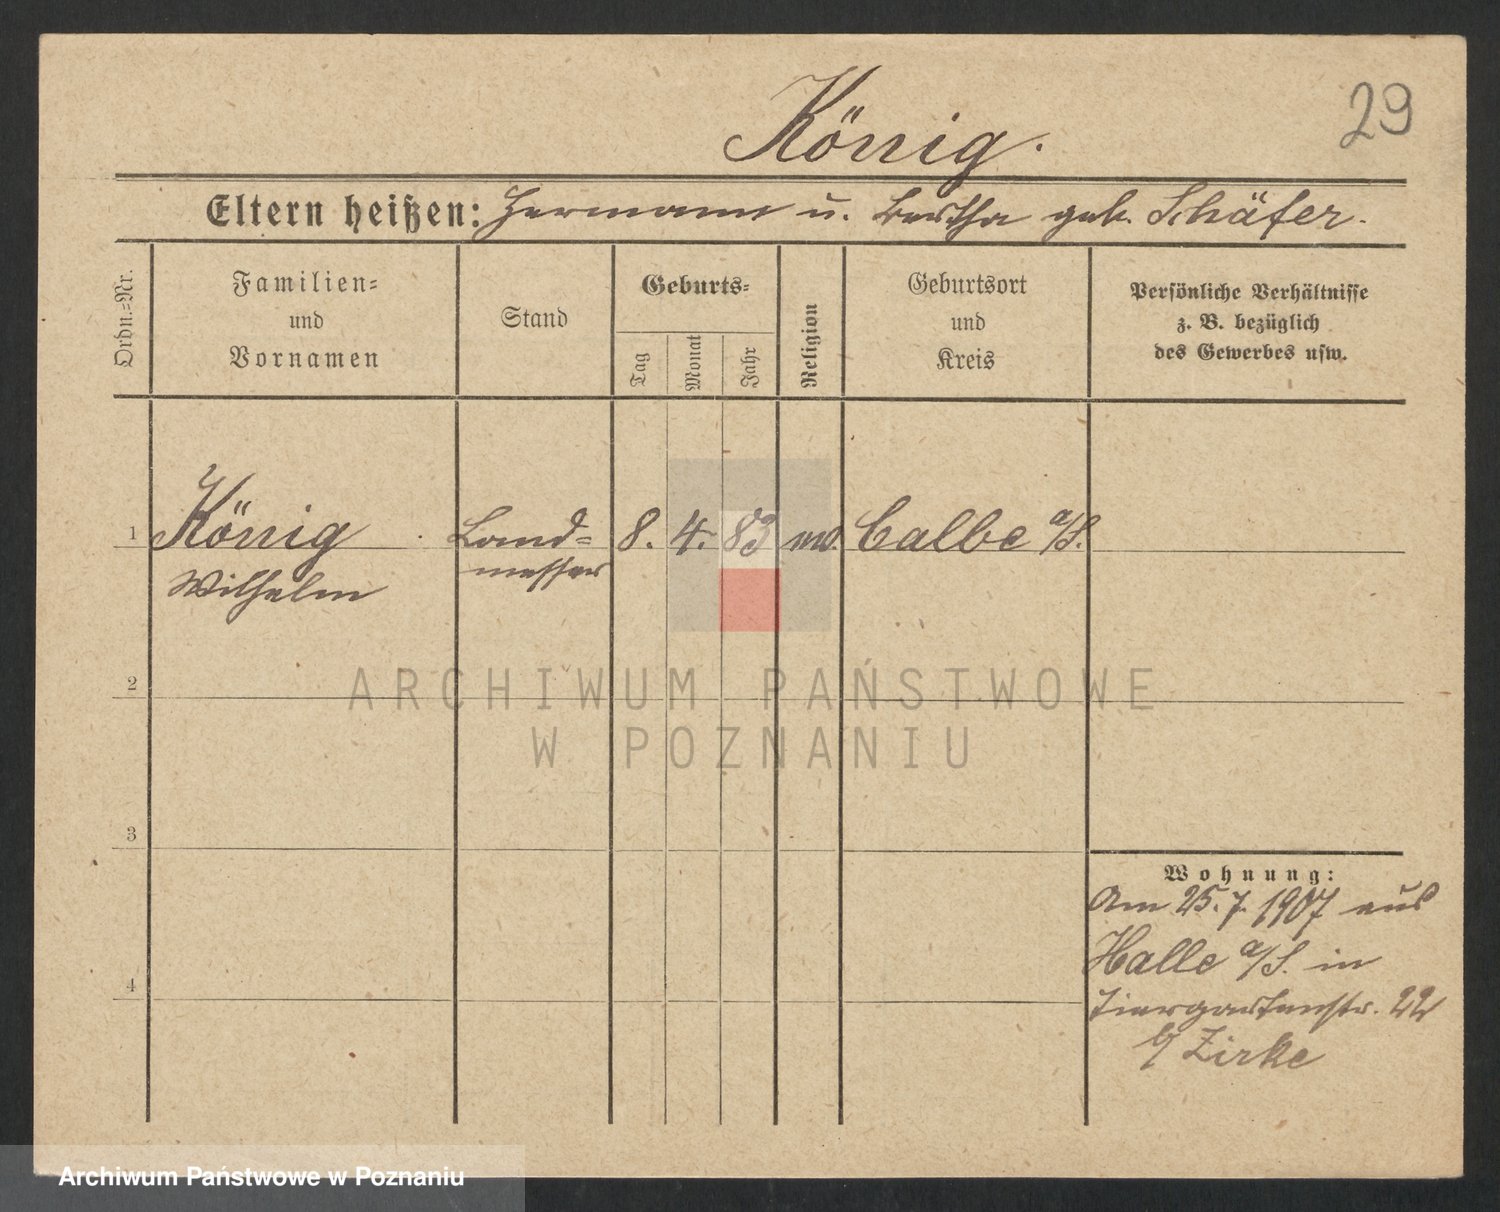 König.
29
Eltern heißen: Hermann u. Bertha geb. Schäfer.
Ordn.=Nr.
Familien=
und
Vornamen
Stand
Geburts=
Tag
Monat
Jahr
Religion
Geburtsort
und
Kreis
Persönliche Verhältnisse
z. B. bezüglich
des Gewerbes usw.
1
König
Wilhelm
Land=
messer
8. 4. 83
Calbe a/S.
2
3
4
Wohnung:
Am 25. 7. 1907 aus
Halle a/S. in
Tiergartenstr. 22
b/ Zirke
ARCHIWUM PAŃSTWOWE
W POZNANIU
Archiwum Państwowe w Poznaniu